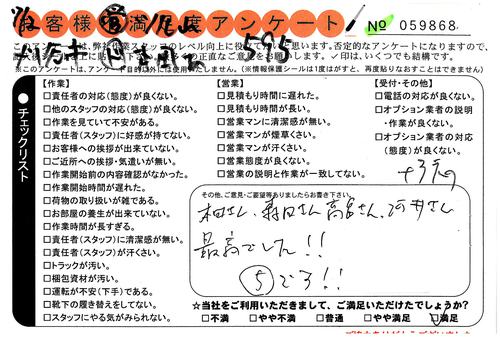 お客様満足度アンケート
№ 059868
595
このアンケートは、弊社作業スタッフのレベル向上に役立てたいと思います。否定的なアンケートになりますので、
正直なご意見をお願いします。✓印は、いくつでも結構です。
※このアンケートは、アンケート目的以外には使用いたしません。(※情報保護シールは1度はがすと、再度貼りなおすことはできません)
●チェックリスト
【作業】
□責任者の対応(態度)が良くない。
□他のスタッフの対応(態度)が良くない。
□作業を見ていて不安がある。
□責任者(スタッフ)に好感が持てない。
□お客様への挨拶が出来ていない。
□ご近所への挨拶・気遣いが無い。
□作業開始前の内容確認がなかった。
□作業開始時間が遅れた。
□荷物の取り扱いが雑である。
□お部屋の養生が出来ていない。
□作業時間が長すぎる。
□責任者(スタッフ)に清潔感が無い。
□責任者(スタッフ)が汗くさい。
□トラックが汚い。
□梱包資材が汚い。
□運転が不安(下手)である。
□靴下の履き替えをしてない。
□スタッフにやる気がみられない。
【営業】
□見積もり時間に遅れた。
□見積もり時間が長い。
□営業マンに清潔感が無い。
□営業マンが煙草くさい。
□営業マンが汗くさい。
□営業態度が良くない。
□営業の説明と作業が一致してない。
【受付・その他】
□電話の対応が良くない。
□オプション業者の説明
・作業が良くない。
□オプション業者の対応
(態度)が良くない。
その他、ご意見・ご要望等ありましたらお書き下さい。
本田さん、森田さん 高宮さん、河井さん
最高でした!!
⑤です!!
☆当社をご利用いただきまして、ご満足いただけたでしょうか?
□不満 □やや不満 □普通 □やや満足 ☑満足